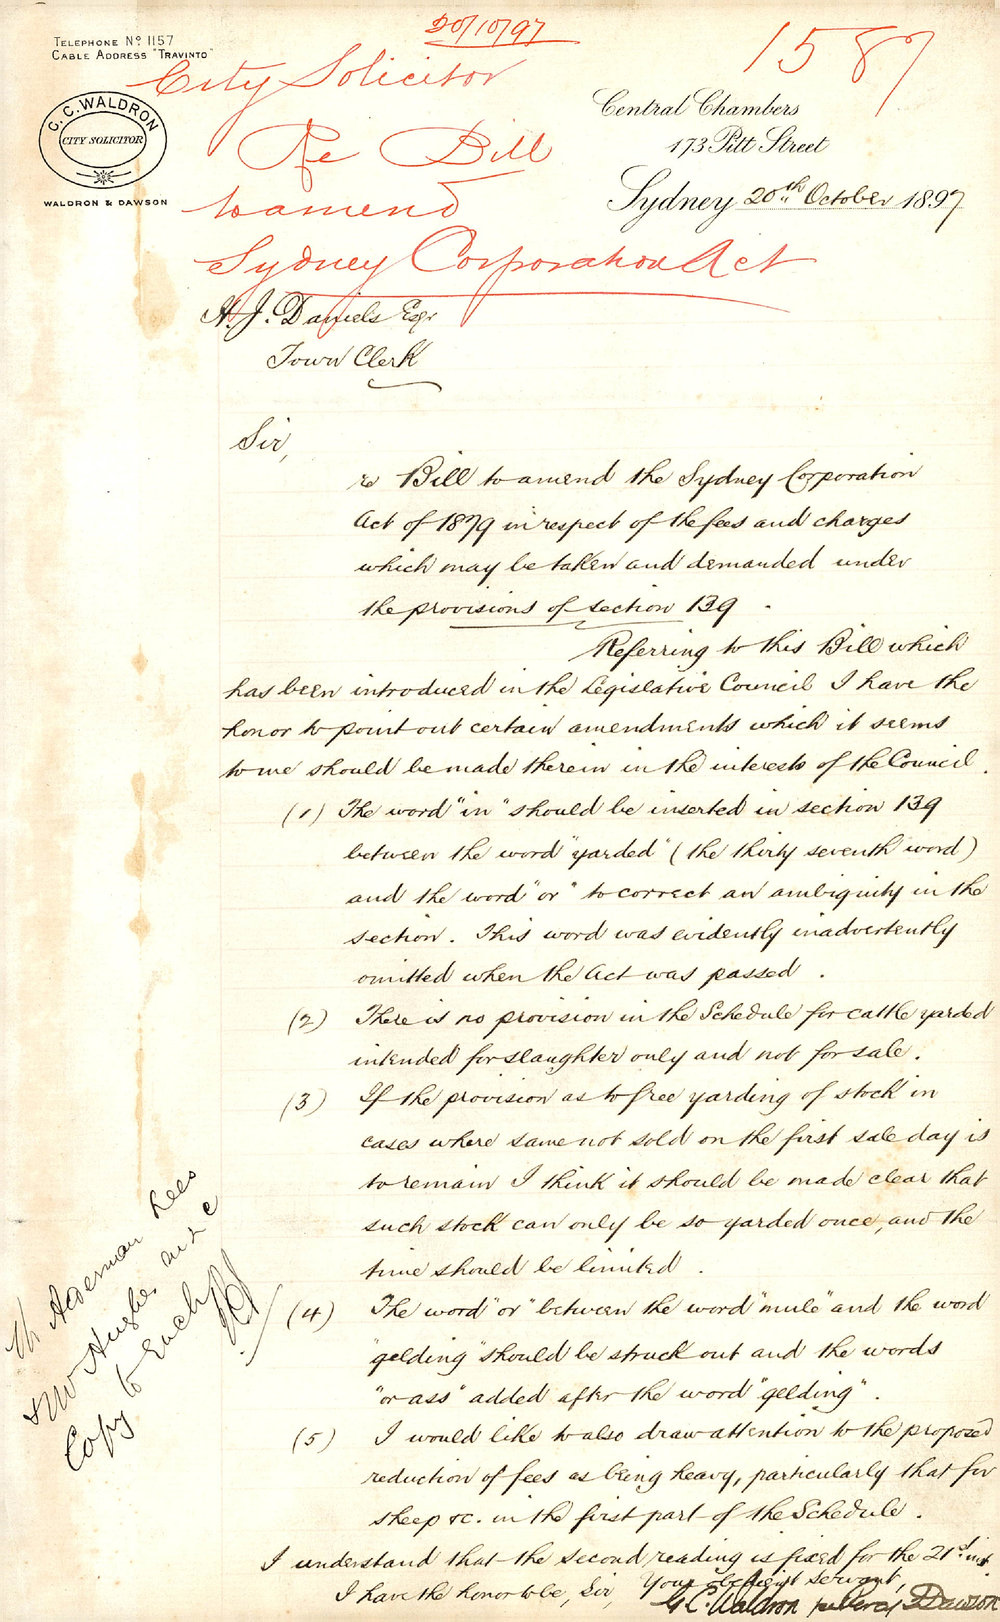 20/10/97
1587
TELEPHONE No 1157
CABLE ADDRESS "TRAVINTO"
City Solicitor
G. C. WALDRON
CITY SOLICITOR
WALDRON & DAWSON
Central Chambers
173 Pitt Street
Sydney 20th October 1897
Re Bill
to amend
Sydney Corporation Act
H. J. Daniels Esqr
Town Clerk
Sir,
re Bill to amend the Sydney Corporation
Act of 1879 in respect of the fees and charges
which may be taken and demanded under
the provisions of section 139.
Referring to this Bill which
has been introduced in the Legislative Council I have the
honor to point out certain amendments which it seems
to me should be made therein in the interests of the Council.
(1) The word "in" should be inserted in section 139
between the word "yarded" (the thirty seventh word)
and the word "or" to correct an ambiguity in the
section. This word was evidently inadvertently
omitted when the Act was passed.
(2) There is no provision in the Schedule for cattle yarded
intended for slaughter only and not for sale.
(3) If the provision as to free yarding of stock in
cases where same not sold on the first sale day is
to remain I think it should be made clear that
such stock can only be so yarded once, and the
time should be limited.
(4) The word "or" between the word "mule" and the word
"gelding" should be struck out and the words
"or ass" added after the word "gelding".
(5) I would like to also draw attention to the proposed
reduction of fees as being heavy, particularly that for
sheep &c. in the first part of the Schedule.
I understand that the second reading is fixed for the 21st inst.
I have the honor to be, Sir, Your obedient servant,
G. C. Waldron per Percy Dawson
Alderman Lees
Hughes and
Copy to each